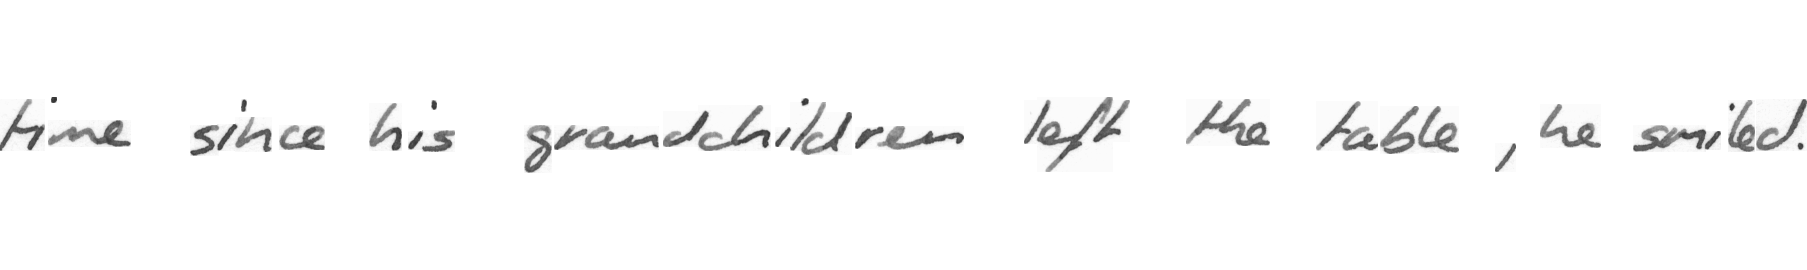 time since his grandchildren left the table, he smiled.